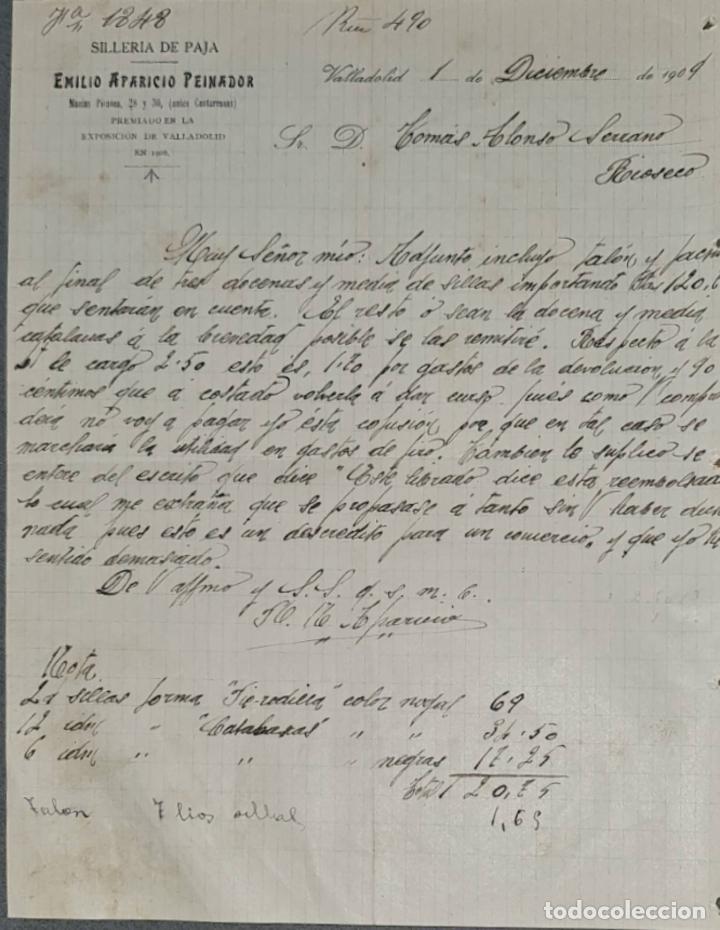 1848
Rn 490
SILLERIA DE PAJA
EMILIO APARICIO PEINADOR
Macías Picavea, 28 y 30, (antes Cantarranas)
PREMIADO EN LA
EXPOSICIÓN DE VALLADOLID
EN 1906.
Valladolid 1 de Diciembre de 1909
Sr. D. Tomás Alonso Serrano
Rioseco
Muy Señor mío: Adjunto incluyo talón y
al final de tres docenas y media de sillas importando 120,
que sentarán en cuenta. El resto ó sean la docena y media
catalanas á la brevedad posible se las remitiré. Respecto á la
le cargo 2.50 esto es, 1.70 por gastos de la devolucion, y 90
céntimos que á costado volverla á dar curso pués como V
no voy a pagar yo ésta por que en tal caso se
marcharia la utilidad en gastos de jiro. Tambien le suplico se
entere del escrito que dice "Este librado dice esta
lo cual me extraña que se propasase á tanto sin V haber
nada" pues esto es un descredito para un comercio, y que yo
sentido demasiado.
De V affmo y S.S. q. s. m. b.
Aparicio
Nota
24 sillas forma "Fie-rodilla" color nogal 69
12 idm " " " " 34.50
6 idm " " " negras 17.25
Total 120,75
Talon 7 lios sillas 1,65
todocoleccion.net